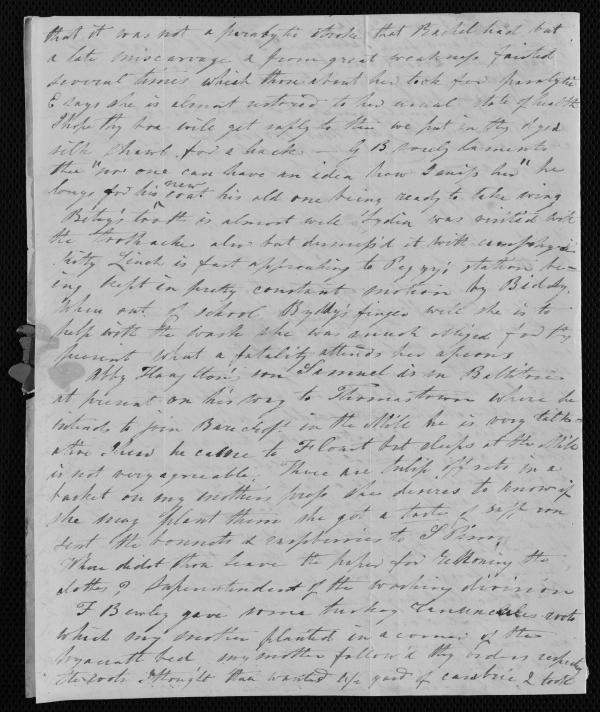 that it was not a paralytic stroke that Rachel had but
a late miscarriage & from great weakness fainted
several times which those about her took for paralytic
E says she is almost restored to her usual state of health
I hope thy box will get safely to thee we put in thy dyed
silk shawl for a back — G B sorely laments
thee "no one can have an idea how I miss her" he
longs for his new coat his old one being ready to take wing
Betsy's tooth is almost well Lydia was visited with
the toothache also but dismiss'd it with camphor
Kitty Linch is fast approaching to Peggy's station be-
ing kept in pretty constant motion by Biddy,
when out of school Biddy's finger well she is to
help with the wash she was much obliged for thy
present what a fatality attends her aprons
Abby Haughton's son Samuel is in Ballitore
at present on his way to Thomastown where he
intends to join in the Mill he is very talk-
ative I hear he came to F Court but sleeps at the Mill
is not very agreeable. There are tulip offsets in a
basket on my mother's press she desires to know if
she may plant them she got a taste of
sent the bonnets & raspberries to S
Where didst thou leave the paper for reckoning the
clothes? Superintendent of the washing division
F Bewley gave some turkey ranunculus roots
which my mother planted in a corner of the
hyacinth bed my mother follow'd thy orders respecting
the roots I thought thou wanted yard of cambric I took